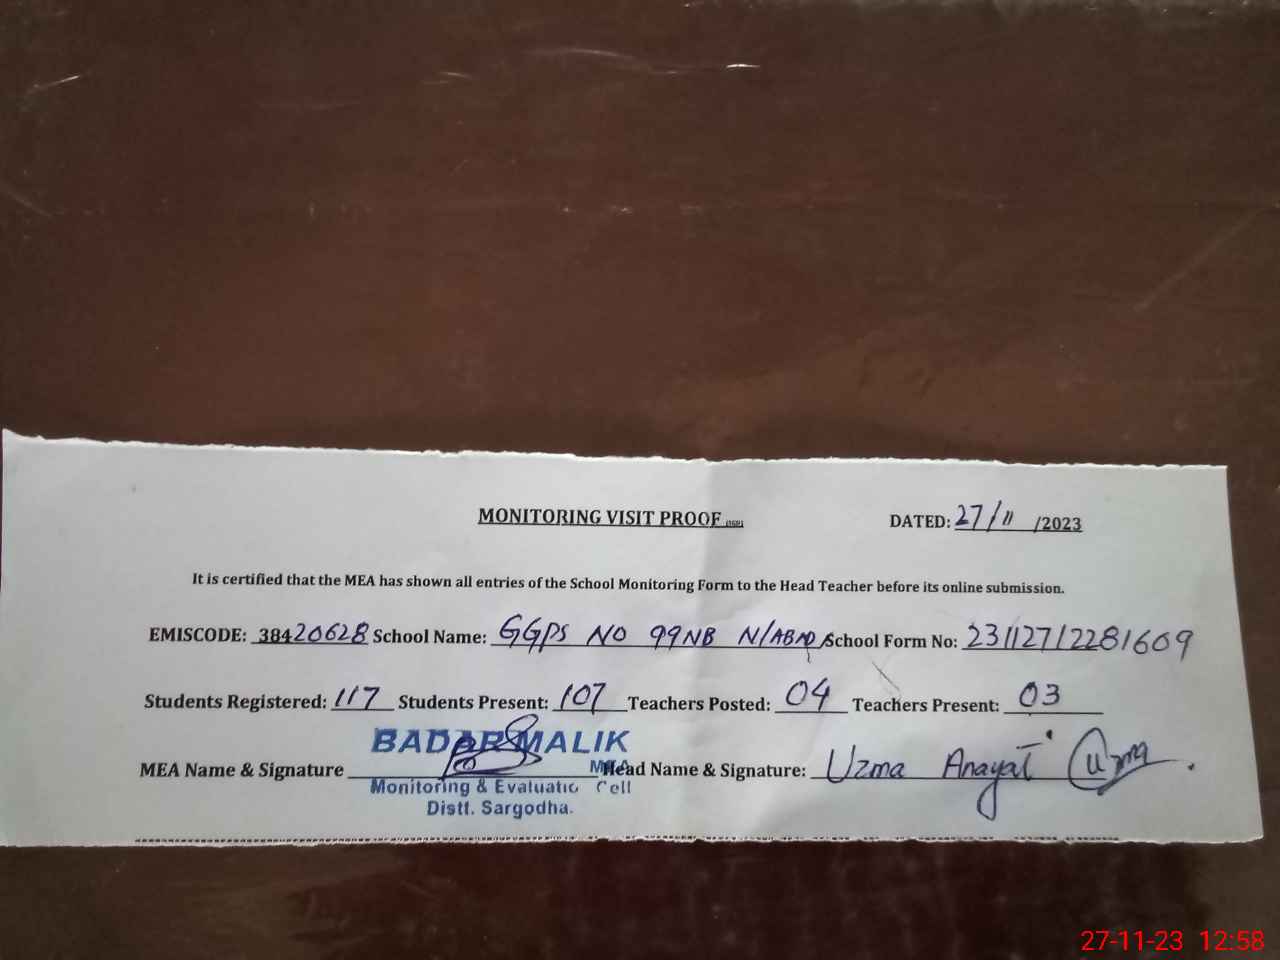 MONITORING VISIT PROOF
DATED: 27/11/2023
It is certified that the MEA has shown all entries of the School Monitoring Form to the Head Teacher before its online submission.
EMISCODE: 38420628 School Name: GGPS NO 99NB N/ABAD School Form No: 231127122281609
Students Registered: 117 Students Present: 107 Teachers Posted: 04 Teachers Present: 03
BADAR MALIK
MEA Name & Signature MEA Head Name & Signature: Uzma Anayat Uzma
Monitoring & Evaluatio Cell
Distt. Sargodha.
27-11-23 12:58